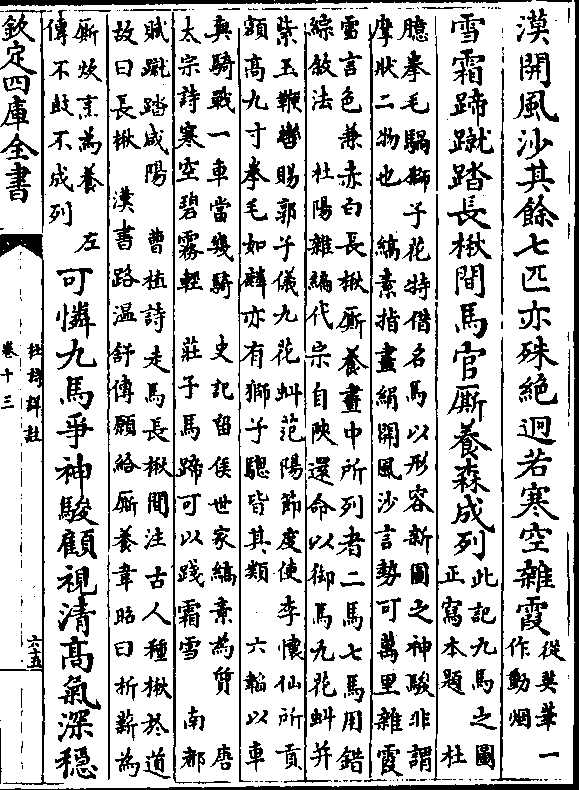 漠開風沙其餘七匹亦殊絶迥若寒空雜霞從英華一
作動烟
雪霜蹄蹴踏長楸間馬官厮養森成列此記九馬之圖
正寫本題 杜
臆拳毛騧獅子花特借名馬以形容新圖之神駿非謂
摩狀二物也 縞素指畫絹開風沙言勢可萬里雜霞
雪言色兼赤白長楸厮養畫中所列者二馬七馬用錯
綜敘法 杜陽雜編代宗自陜還命以御馬九花虯并
紫玉鞭轡賜郭子儀九花虬范陽節度使李懷仙所貢
額高九寸拳毛如麟亦有獅子驄皆其類 六韜以車
與騎戰一車當幾騎 史記留侯世家縞素為質 唐
太宗詩寒空碧霧輕 莊子馬蹄可以踐霜雪 南都
賦蹴踏咸陽 曹植詩走馬長楸間注古人種楸於道
故曰長楸 漢書路溫舒傳願給厮養韋昭曰析薪為
厮炊烹為養 左
傳不鼓不成列
可憐九馬爭神駿顧視清髙氣深穩
欽定四庫全書
杜詩詳註
卷十三
六十五